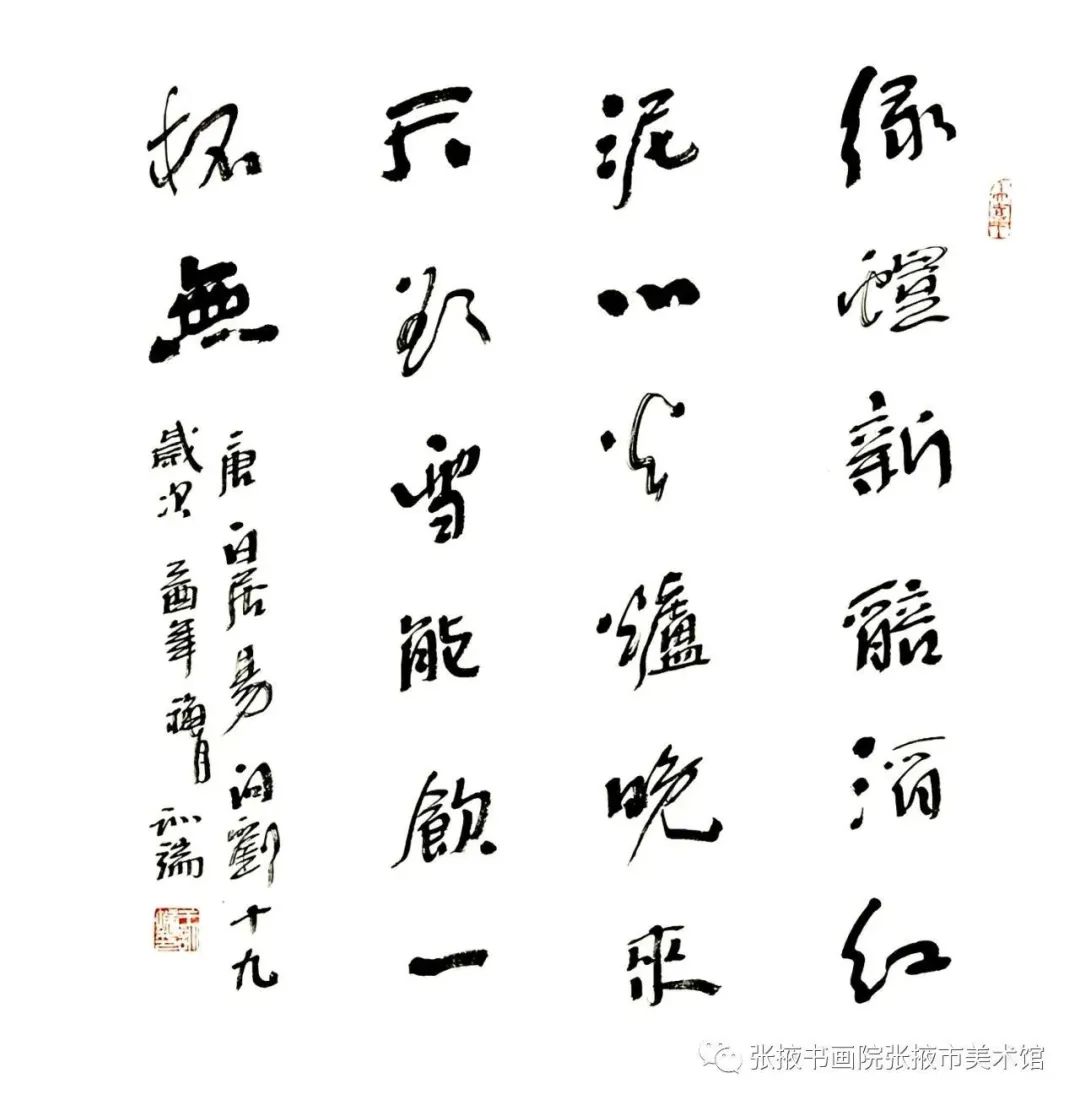 绿螘新醅酒红
泥小火爐晚來
天欲雪能飲一
杯無
唐白居易问劉十九
歲次乙酉年梅月 訓端
张掖书画院张掖市美术馆